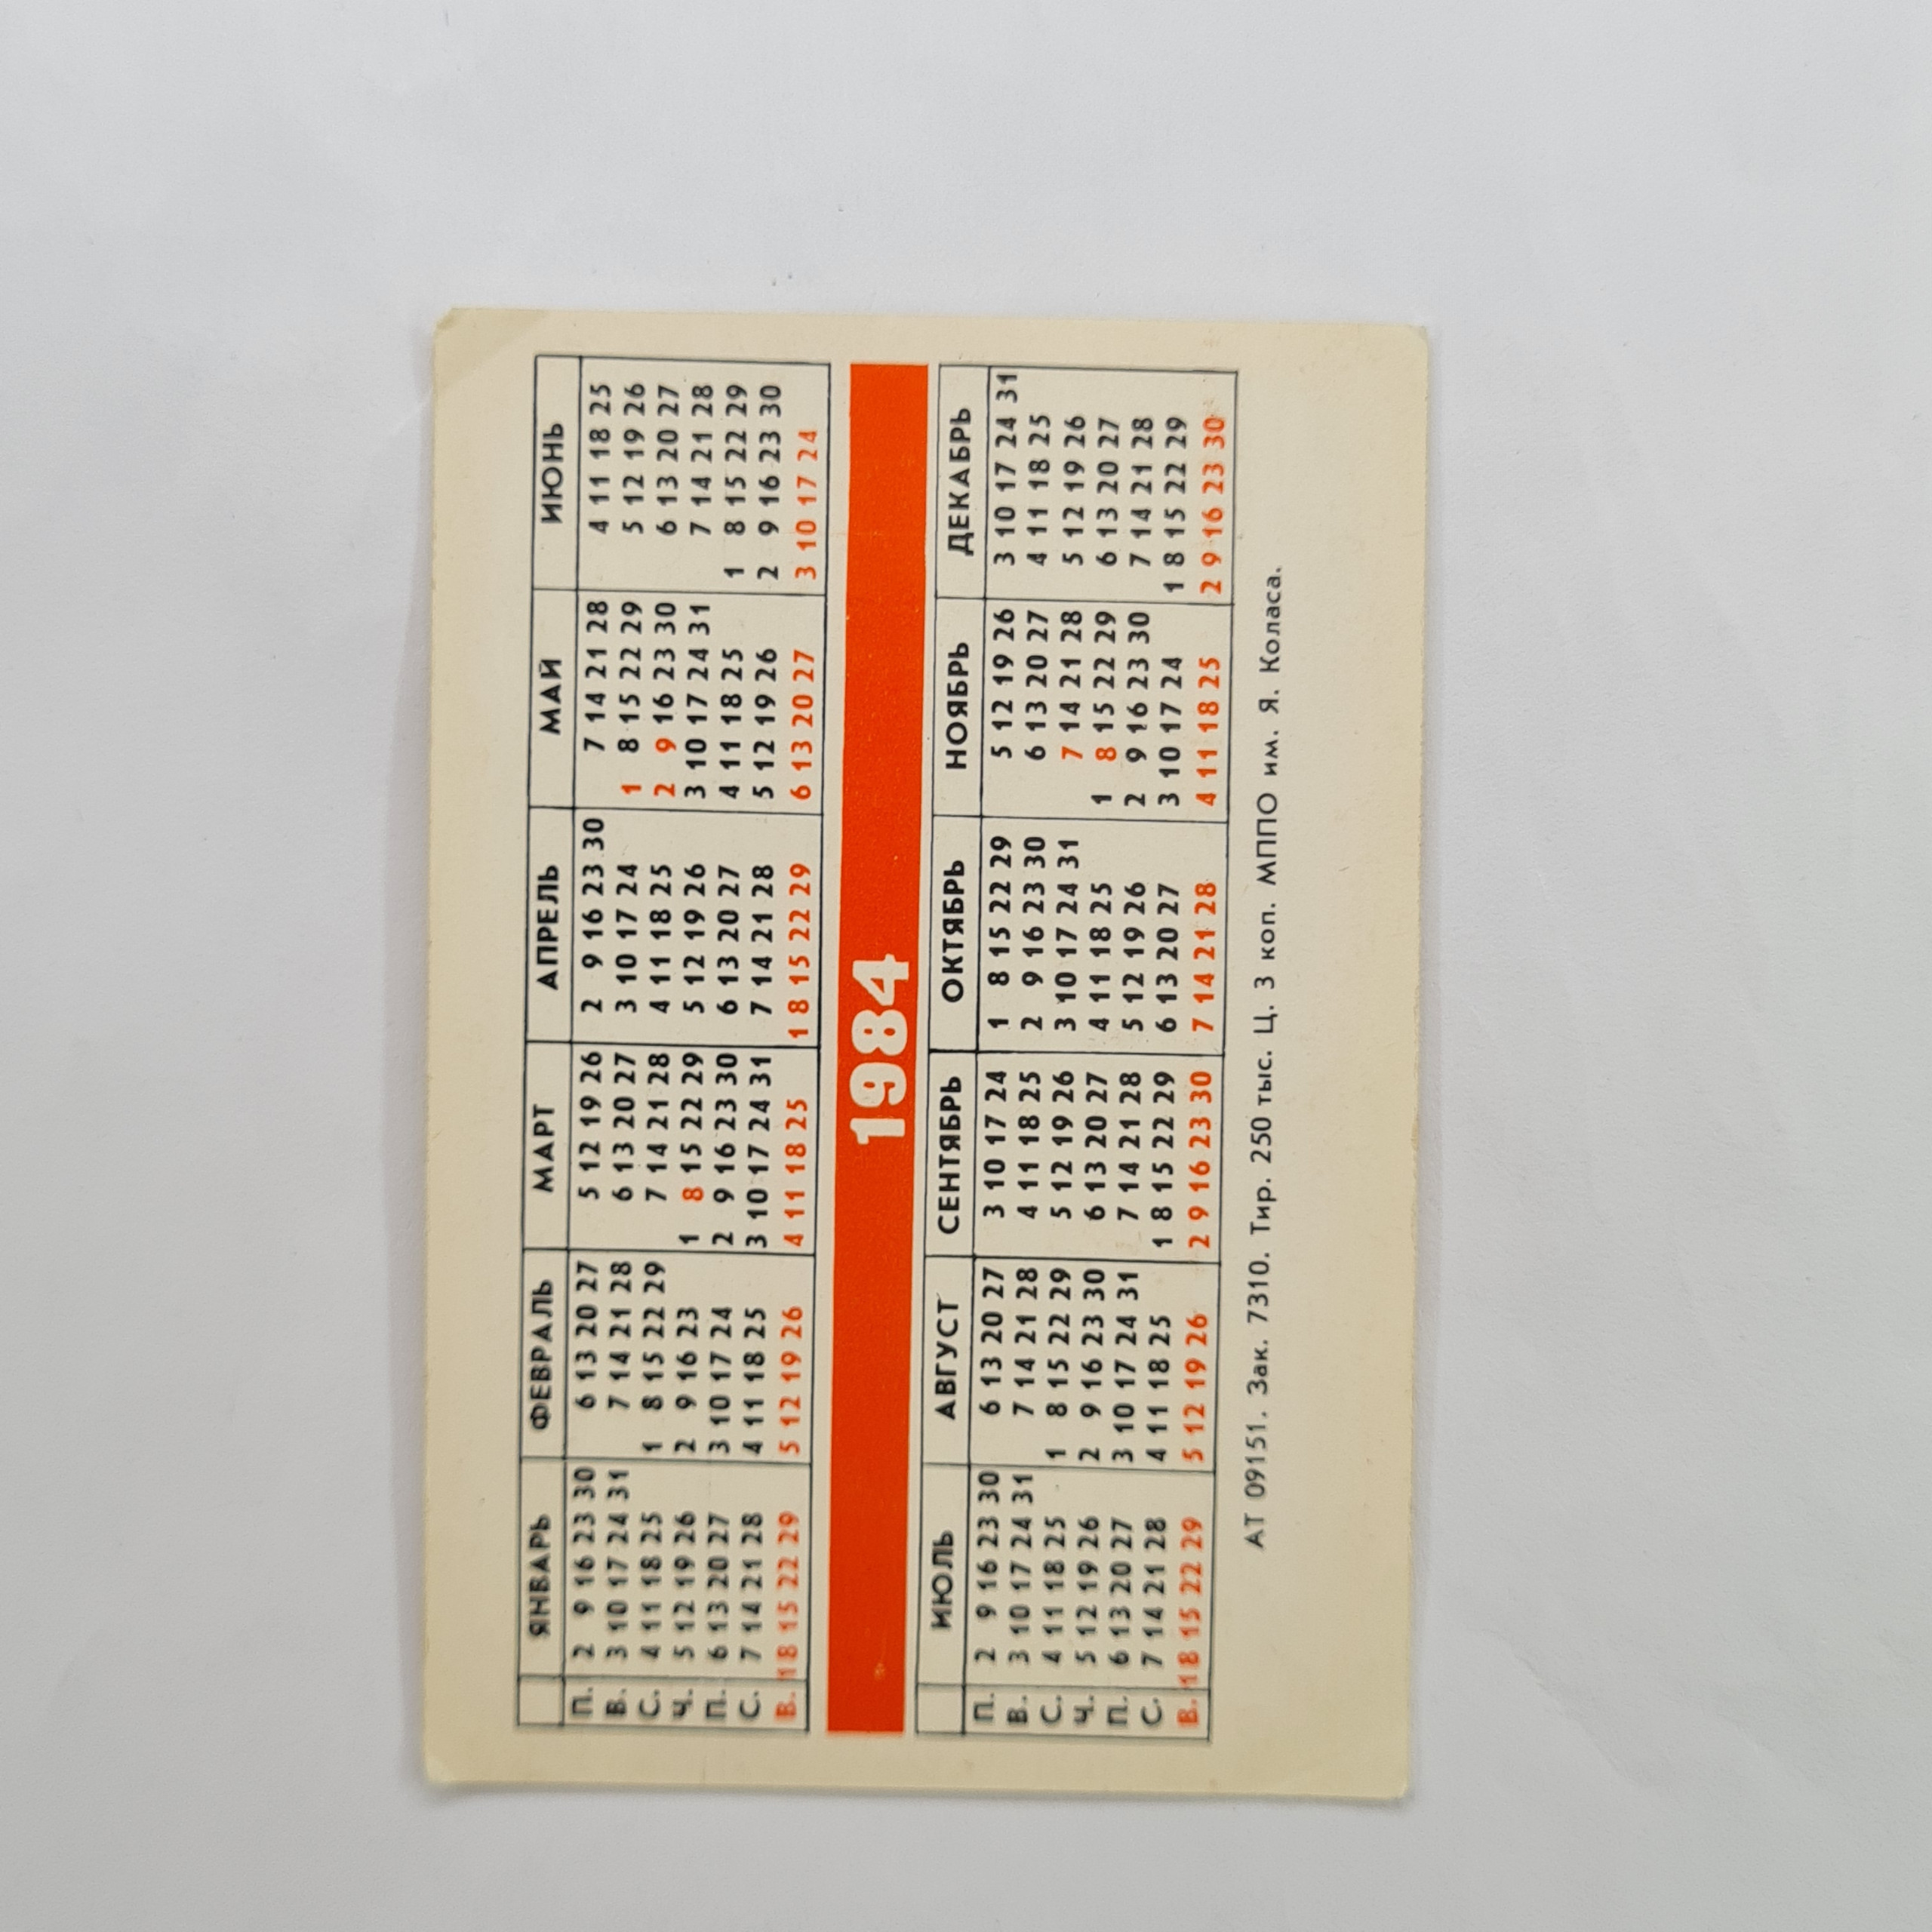 ЯНВАРЬ ФЕВРАЛЬ МАРТ АПРЕЛЬ МАЙ ИЮНЬ
П. 2 9 16 23 30 6 13 20 27 5 12 19 26 2 9 16 23 30 7 14 21 28 4 11 18 25
В. 3 10 17 24 31 7 14 21 28 6 13 20 27 3 10 17 24 1 8 15 22 29 5 12 19 26
С. 4 11 18 25 1 8 15 22 29 7 14 21 28 4 11 18 25 2 9 16 23 30 6 13 20 27
Ч. 5 12 19 26 2 9 16 23 1 8 15 22 29 5 12 19 26 3 10 17 24 31 7 14 21 28
П. 6 13 20 27 3 10 17 24 2 9 16 23 30 6 13 20 27 4 11 18 25 1 8 15 22 29
С. 7 14 21 28 4 11 18 25 3 10 17 24 31 7 14 21 28 5 12 19 26 2 9 16 23 30
В. 1 8 15 22 29 5 12 19 26 4 11 18 25 1 8 15 22 29 6 13 20 27 3 10 17 24
1984
ИЮЛЬ АВГУСТ СЕНТЯБРЬ ОКТЯБРЬ НОЯБРЬ ДЕКАБРЬ
П. 2 9 16 23 30 6 13 20 27 3 10 17 24 1 8 15 22 29 5 12 19 26 3 10 17 24 31
В. 3 10 17 24 31 7 14 21 28 4 11 18 25 2 9 16 23 30 6 13 20 27 4 11 18 25
С. 4 11 18 25 1 8 15 22 29 5 12 19 26 3 10 17 24 31 7 14 21 28 5 12 19 26
Ч. 5 12 19 26 2 9 16 23 30 6 13 20 27 4 11 18 25 1 8 15 22 29 6 13 20 27
П. 6 13 20 27 3 10 17 24 31 7 14 21 28 5 12 19 26 2 9 16 23 30 7 14 21 28
С. 7 14 21 28 4 11 18 25 1 8 15 22 29 6 13 20 27 3 10 17 24 1 8 15 22 29
В. 1 8 15 22 29 5 12 19 26 2 9 16 23 30 7 14 21 28 4 11 18 25 2 9 16 23 30
АТ 09151. Зак. 7310. Тир. 250 тыс. Ц. 3 коп. МППО им. Я. Коласа.